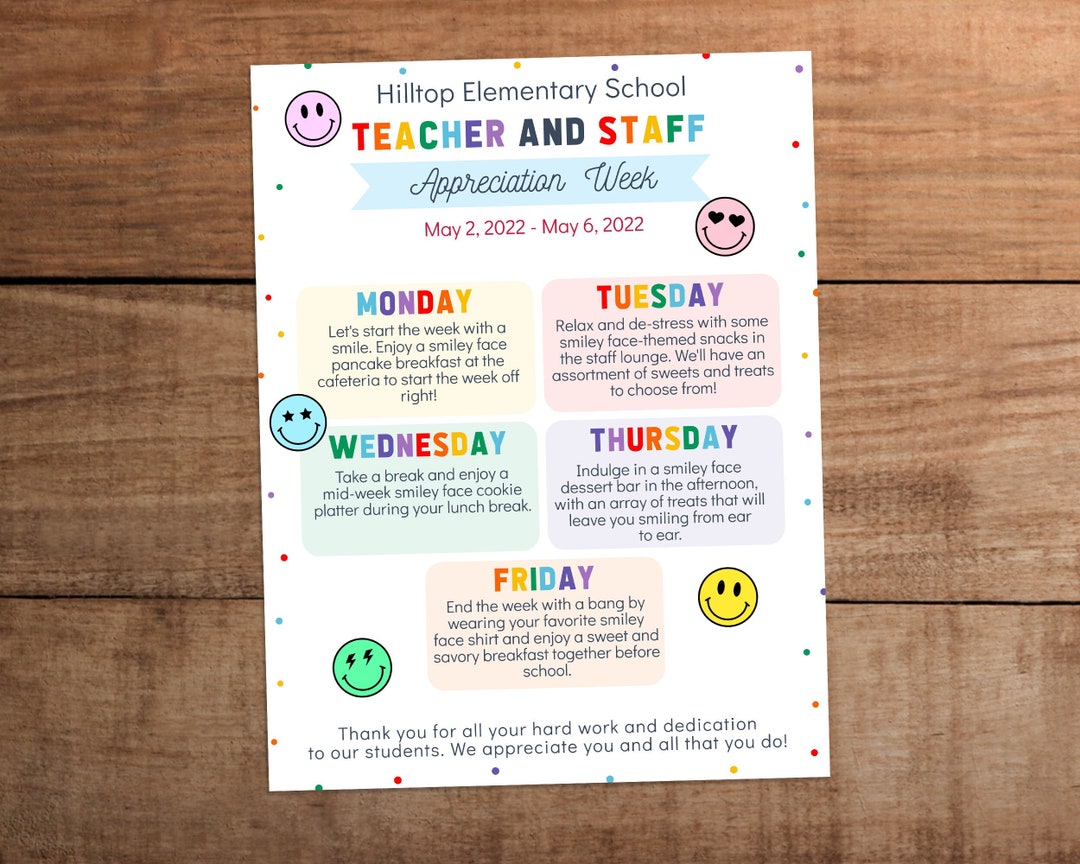 Hilltop Elementary School
TEACHER AND STAFF
Appreciation Week
May 2, 2022 - May 6, 2022
MONDAY
Let's start the week with a
smile. Enjoy a smiley face
pancake breakfast at the
cafeteria to start the week off
right!
TUESDAY
Relax and de-stress with some
smiley face-themed snacks in
the staff lounge. We'll have an
assortment of sweets and treats
to choose from!
WEDNESDAY
Take a break and enjoy a
mid-week smiley face cookie
platter during your lunch break.
THURSDAY
Indulge in a smiley face
dessert bar in the afternoon,
with an array of treats that will
leave you smiling from ear
to ear.
FRIDAY
End the week with a bang by
wearing your favorite smiley
face shirt and enjoy a sweet and
savory breakfast together before
school.
Thank you for all your hard work and dedication
to our students. We appreciate you and all that you do!